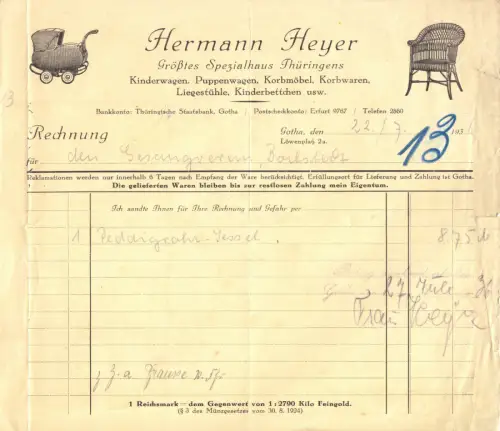 Hermann Heyer
Größtes Spezialhaus Thüringens
Kinderwagen, Puppenwagen, Korbmöbel, Korbwaren,
Liegestühle, Kinderbettchen usw.
Bankkonto: Thüringische Staatsbank, Gotha | Postscheckkonto: Erfurt 8762 | Telefon 2860
Rechnung
Gotha, den 22./7. 193
Löwenplatz 2a.
13
für den Gesangverein,
Reklamationen werden nur innerhalb 6 Tagen nach Empfang der Ware berücksichtigt. Erfüllungsort für Lieferung und Zahlung ist Gotha.
Die gelieferten Waren bleiben bis zur restlosen Zahlung mein Eigentum.
Ich sandte Ihnen für Ihre Rechnung und Gefahr per
1 Peddigrohr-Sessel. 8.75
27 Juli
Frau Heyer
1 Reichsmark = dem Gegenwert von 1:2790 Kilo Feingold.
(§ 3 des Münzgesetzes vom 30. 8. 1924)